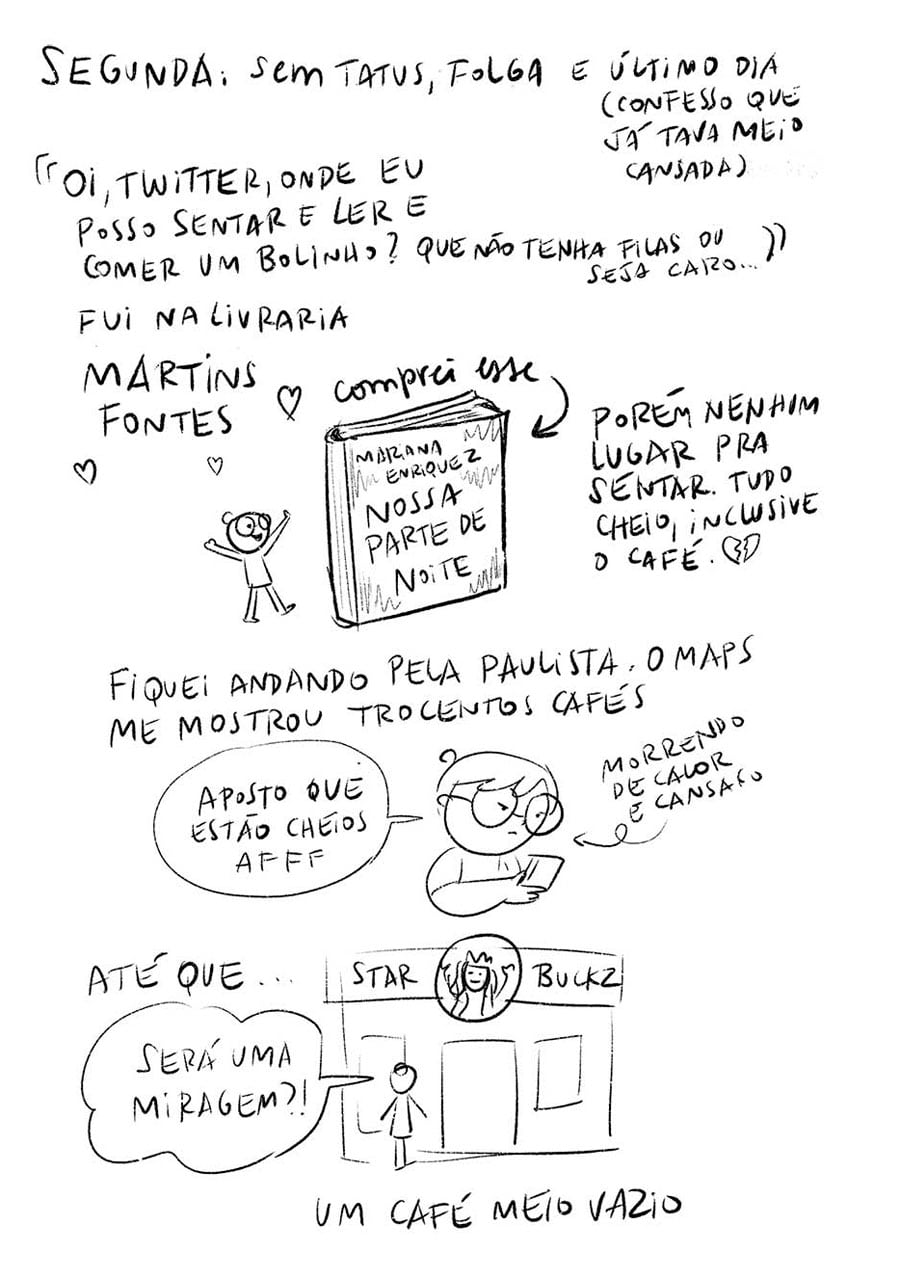 SEGUNDA: SEM TATUS, FOLGA E ÚLTIMO DIA
(CONFESSO QUE
JÁ TAVA MEIO
CANSADA)
"OI, TWITTER, ONDE EU
POSSO SENTAR E LER E
COMER UM BOLINHO? QUE NÃO TENHA FILAS OU
SEJA CARO..."
FUI NA LIVRARIA
MARTINS
FONTES
comprei esse
MARIANA
ENRIQUEZ
NOSSA
PARTE DE
NOITE
PORÉM NENHUM
LUGAR PRA
SENTAR. TUDO
CHEIO, INCLUSIVE
O CAFÉ.
FIQUEI ANDANDO PELA PAULISTA. O MAPS
ME MOSTROU TROCENTOS CAFÉS
APOSTO QUE
ESTÃO CHEIOS
AFFF
MORRENDO
DE CALOR
E CANSAÇO
ATÉ QUE...
STAR BUCKZ
SERÁ UMA
MIRAGEM?!
UM CAFÉ MEIO VAZIO